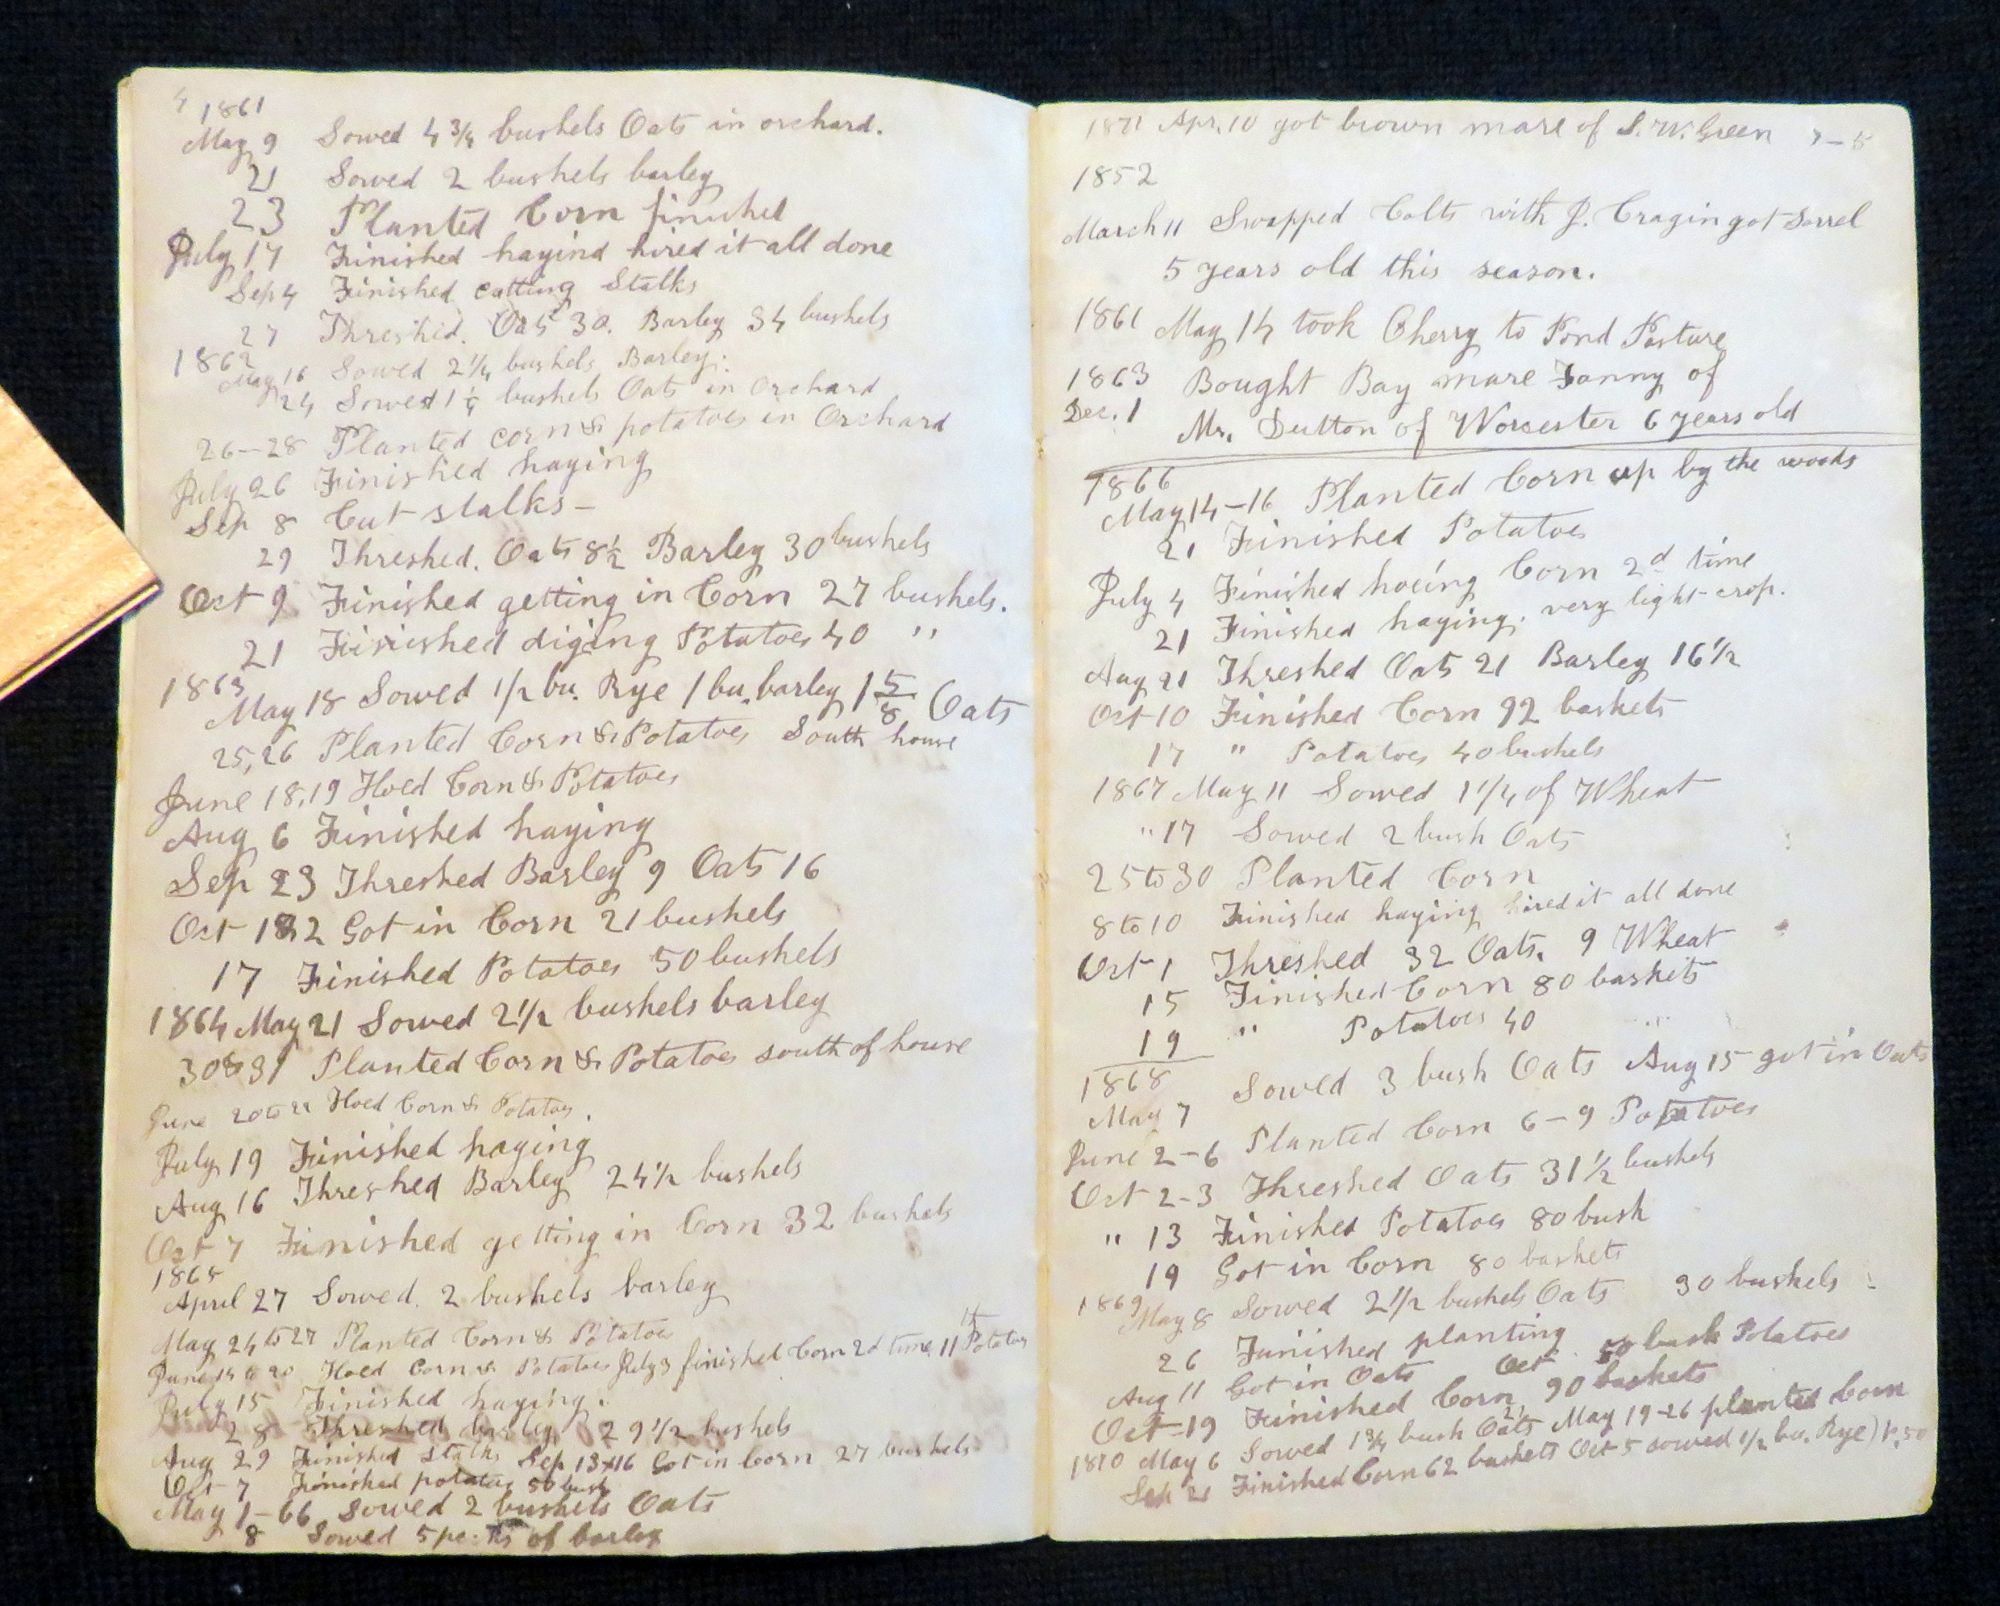 1861
May 9 Sowed 4 3/4 bushels Oats in orchard.
21 Sowed 2 bushels barley
23 Planted Corn finished
July 17 Finished hayind hired it all done
Sep 4 Finished cutting Stalks
27 Threshed. Oats 30. Barley 34 bushels
1862
May 16 Sowed 2 1/4 bushels Barley.
24 Sowed 1 1/4 bushels Oats in Orchard
26-28 Planted corn & potatoes in Orchard
July 26 Finished haying
Sep 8 Cut stalks -
29 Threshed. Oats 8 1/2 Barley 30 bushels
Oct 9 Finished getting in Corn 27 bushels.
21 Finished diging Potatoes 40 "
1863
May 18 Sowed 1/2 bu. Rye 1 bu. barley 1 5/8 Oats
25,26 Planted Corn & Potatoes South house
June 18,19 Hoed Corn & Potatoes
Aug 6 Finished haying
Sep 23 Threshed Barley 9 Oats 16
Oct Got in Corn 21 bushels
17 Finished Potatoes 50 bushels
1864 May 21 Sowed 2 1/2 bushels barley
30&31 Planted Corn & Potatoes south of house
June 20 to Hoed Corn & Potatoes.
July 19 Finished haying
Aug 16 Threshed Barley 24 1/2 bushels
Oct 7 Finished getting in Corn 32 bushels
1865
April 27 Sowed. 2 bushels barley
May 24 to 27 Planted Corn & Potatoes
June to 20 Hoed Corn & Potatoes July 3 finished Corn 2d time 11th Potatoes
July 15 Finished haying.
28 Threshed barley 29 1/2 bushels
Aug 29 Finished Stalks Sep 13 16 Got in Corn 27 bushels
Oct 7 Finished potatoes 50 bush
May 1-66 Sowed 2 bushels Oats
8 Sowed 5 pecks of barley
1871 Apr. 10 got brown mare of S. W. Green
1852
March 11 Swapped Colts with J. Cragin got Sorrel
5 years old this season.
1861 May 14 took Cherry to Pond Pasture
1863 Bought Bay mare Fanny of
Dec. 1 Mr. Dutton of Worcester 6 years old
1866
May 14-16 Planted Corn up by the woods
21 Finished Potatoes
July 4 Finished hoeing Corn 2d time
21 Finished haying. very light crop.
Aug 21 Threshed Oats 21 Barley 16 1/2
Oct 10 Finished Corn 92 baskets
17 " Potatoes 40 bushels
1867 May 11 Sowed 1 1/4 of Wheat
" 17 Sowed 2 bush Oats
25 to 30 Planted Corn
8 to 10 Finished haying hired it all done
Oct 1 Threshed 32 Oats. 9 Wheat
15 Finished Corn 80 baskets
19 " Potatoes 40
1868
May 7 Sowed 3 bush Oats Aug 15 got in Oats
June 2-6 Planted Corn 6-9 Potatoes
Oct 2-3 Threshed Oats 31 1/2 bushels
" 13 Finished Potatoes 80 bush
19 Got in Corn 80 baskets
1869
May 8 Sowed 2 1/2 bushels Oats 30 bushels
26 Finished planting
Aug 11 Got in Oats Oct bush Potatoes
Oct-19 Finished Corn 90 baskets
1870 May 6 Sowed 1 3/4 bush Oats May 19-26 planted Corn
Sep Finished Corn 62 baskets Oct 5 sowed 1/2 bu. Rye)